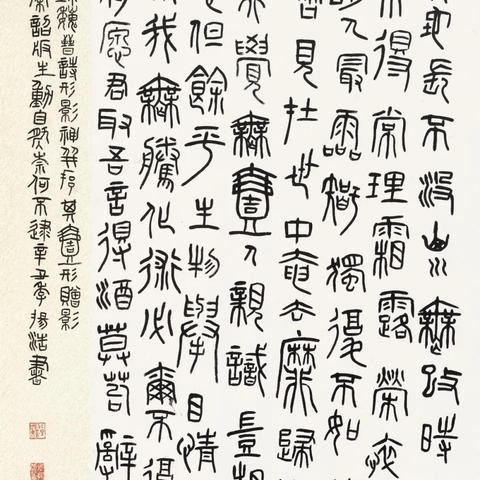 地長不沒山川無改時
得常理霜露榮悴
人最靈智獨復不如
見在世中奄去靡歸
覺無壹人親識豈相
但餘平生物舉目情
我無騰化術必爾不復
願君取吾言得酒莫苟辭
魏晉詩形影神并序其壹形贈影
詔版生動自然奈何不逮辛丑季楊浩書